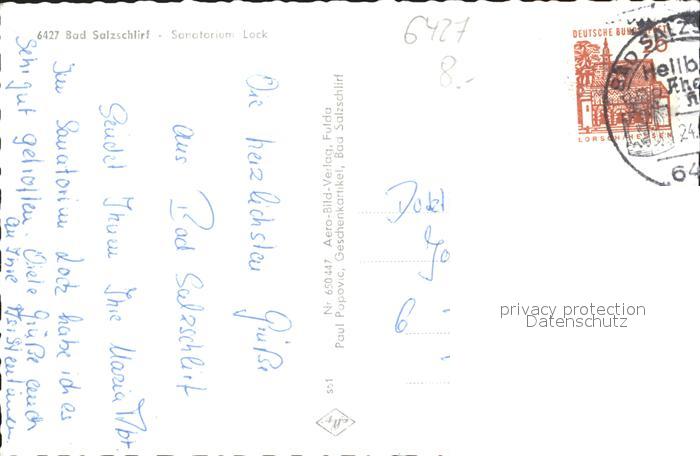 6427 Bad Salzschlirf - Sanatorium Lock
6427
8.-
Die herzlichsten Grüße
aus Bad Salzschlirf
Sendet Ihnen Ihre Maria
Im Sanatorium Lock habe ich es
sehr gut getroffen. Viele Grüße auch
an Ihre Assistentinnen
Nr 650 447 Aero-Bild-Verlag, Fulda
Paul Popovic, Geschenkartikel, Bad Salzschlirf
Dokt
6
DEUTSCHE BUNDE
20
LORSCH/HESSEN
BAD SALZS
Heilb
24.
64
privacy protection
Datenschutz